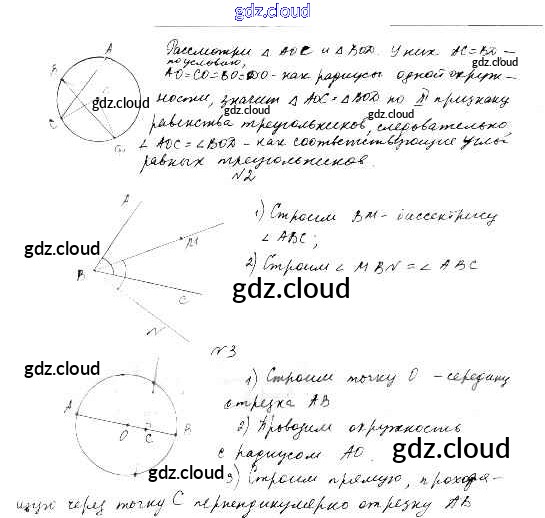 gdz.cloud
Рассмотрим △ AOC и △ BOD. У них AC=BD -
по условию,
AO=CO=BO=DO - как радиусы одной окруж-
ности, значит △ AOC = △ BOD по III признаку
равенства треугольников, следовательно
∠ AOC = ∠ BOD - как соответствующие углы
равных треугольников.
A
B
C
gdz.cloud
gdz.cloud
gdz.cloud
gdz.cloud
N2
1) Строим BM - биссектрису
∠ ABC;
2) Строим ∠ MBN = ∠ ABC
A
M
B
C
N
gdz.cloud
gdz.cloud
N3
1) Строим точку O - середину
отрезка AB
2) Проводим окружность
с радиусом AO.
3) Строим прямую, проходя-
щую через точку C перпендикулярно отрезку AB
A
O
C
B
gdz.cloud
gdz.cloud
gdz.cloud